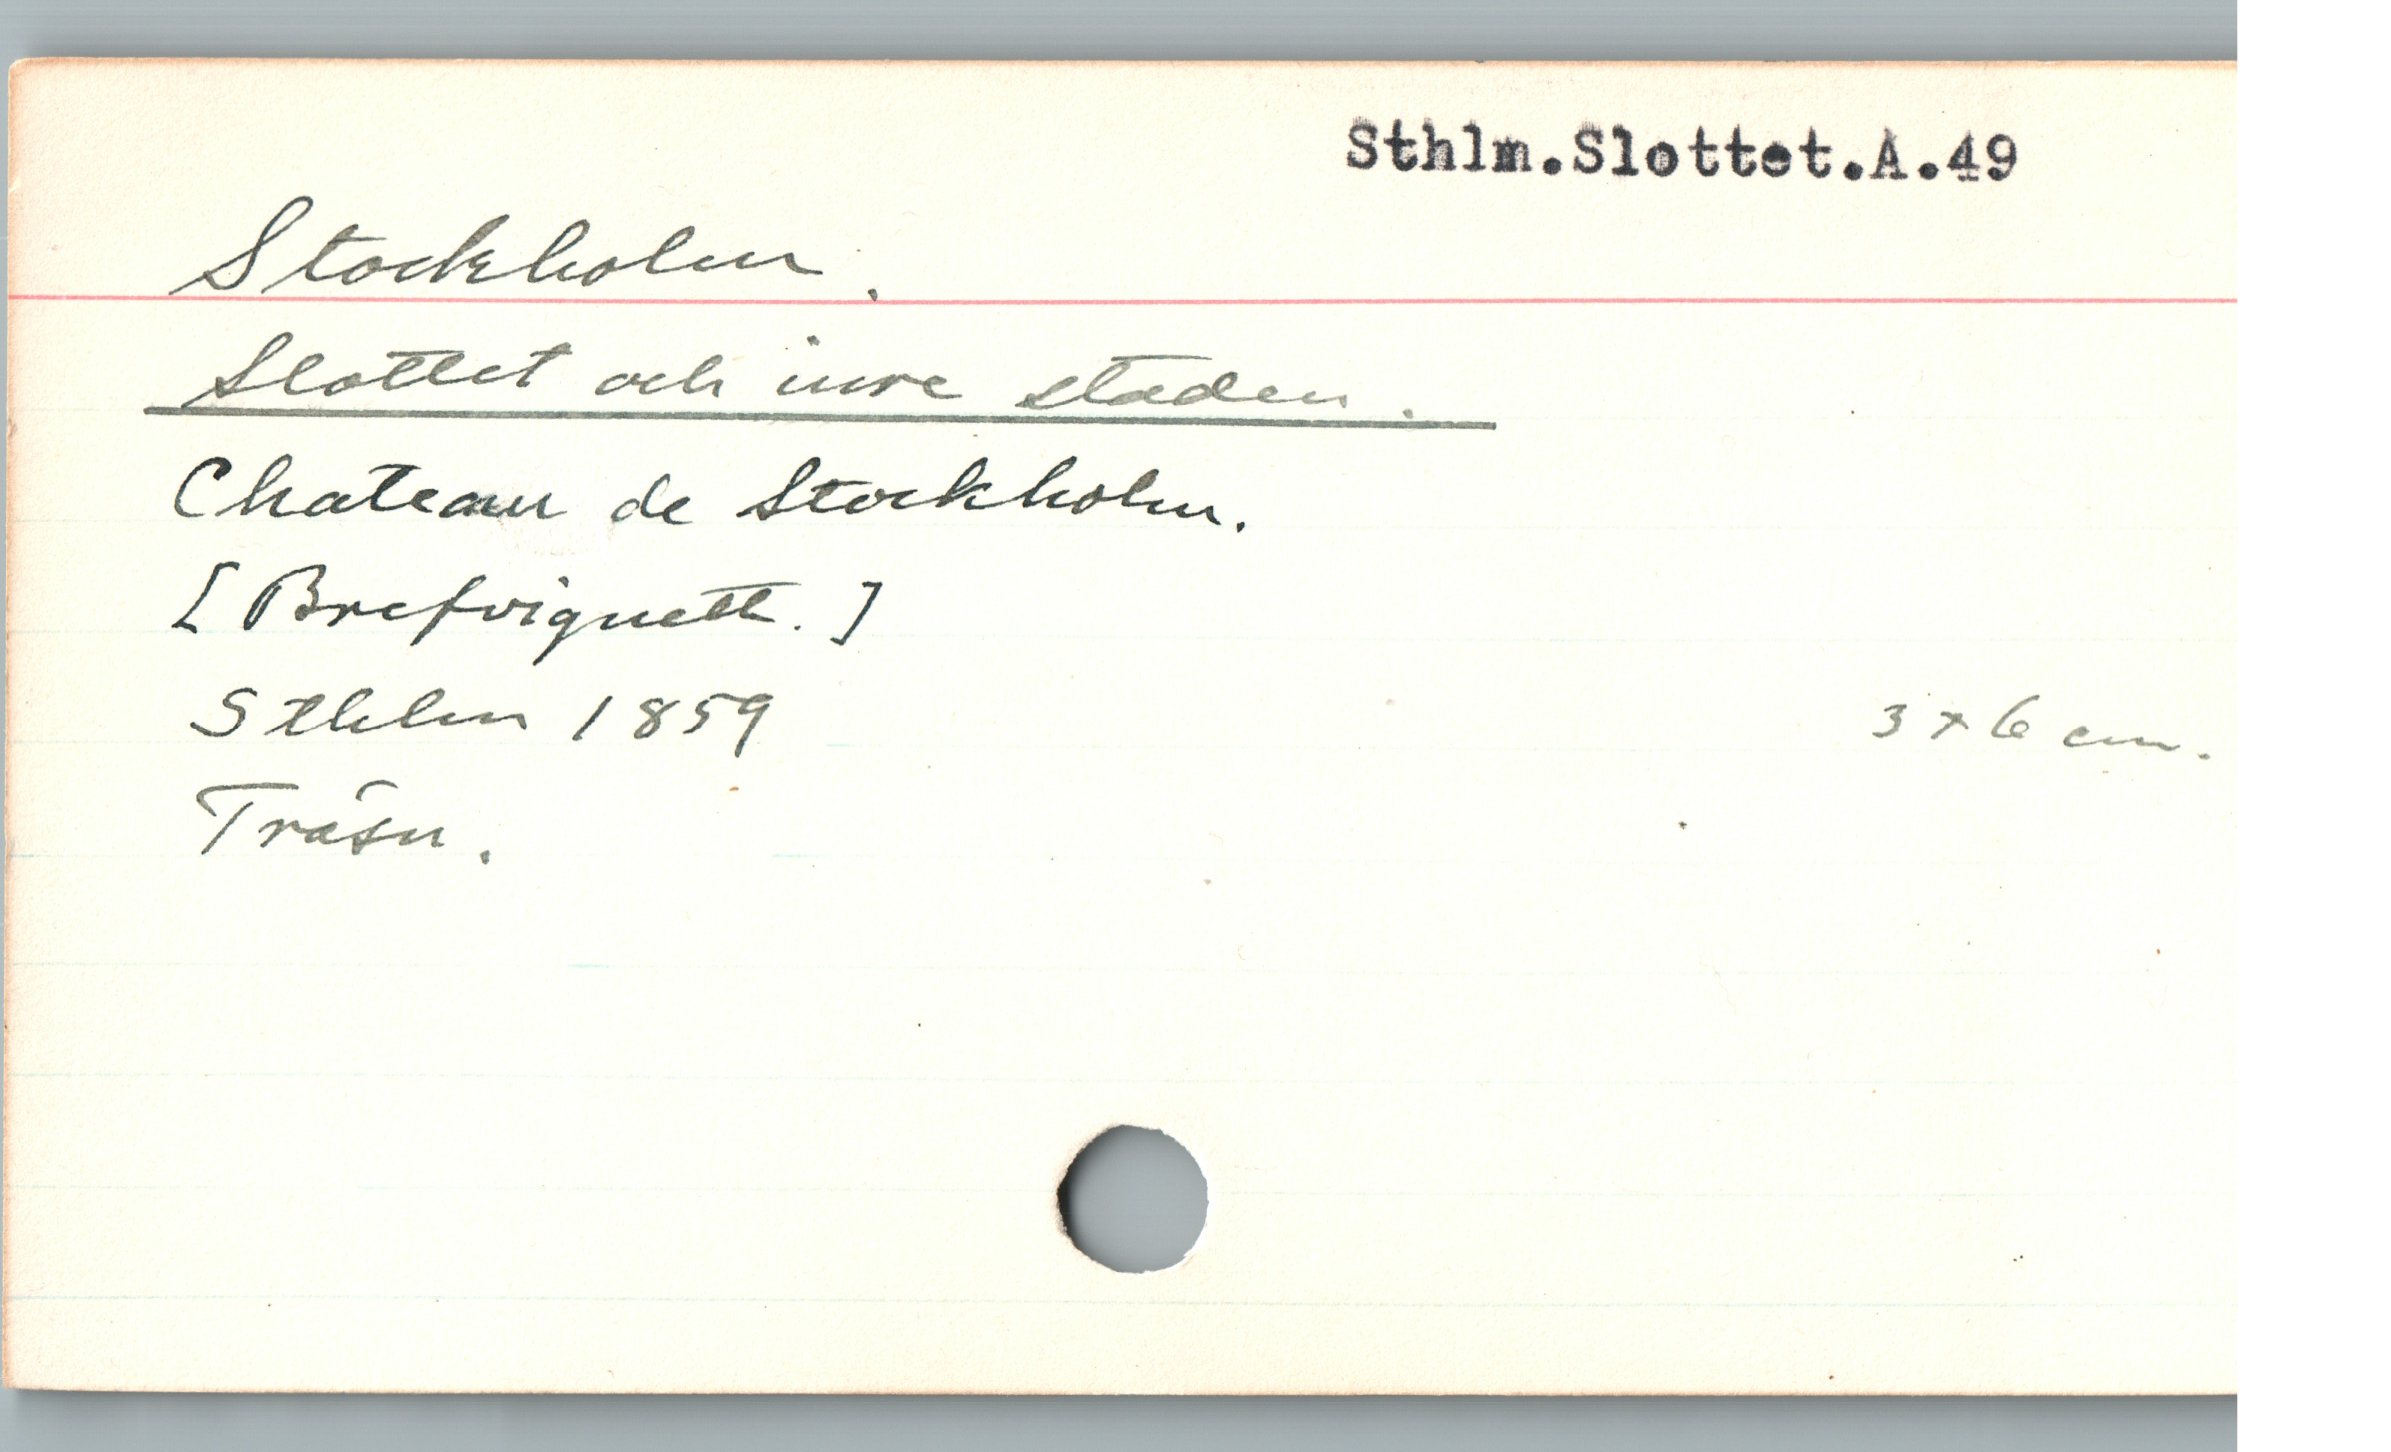 Sthlm.Slottet.A.49
Stockholm.
Slottet och inre staden.
Chateau de Stockholm.
[Brefvignett.]
Sthlm 1859 3 x 6 cm.
Träsn.